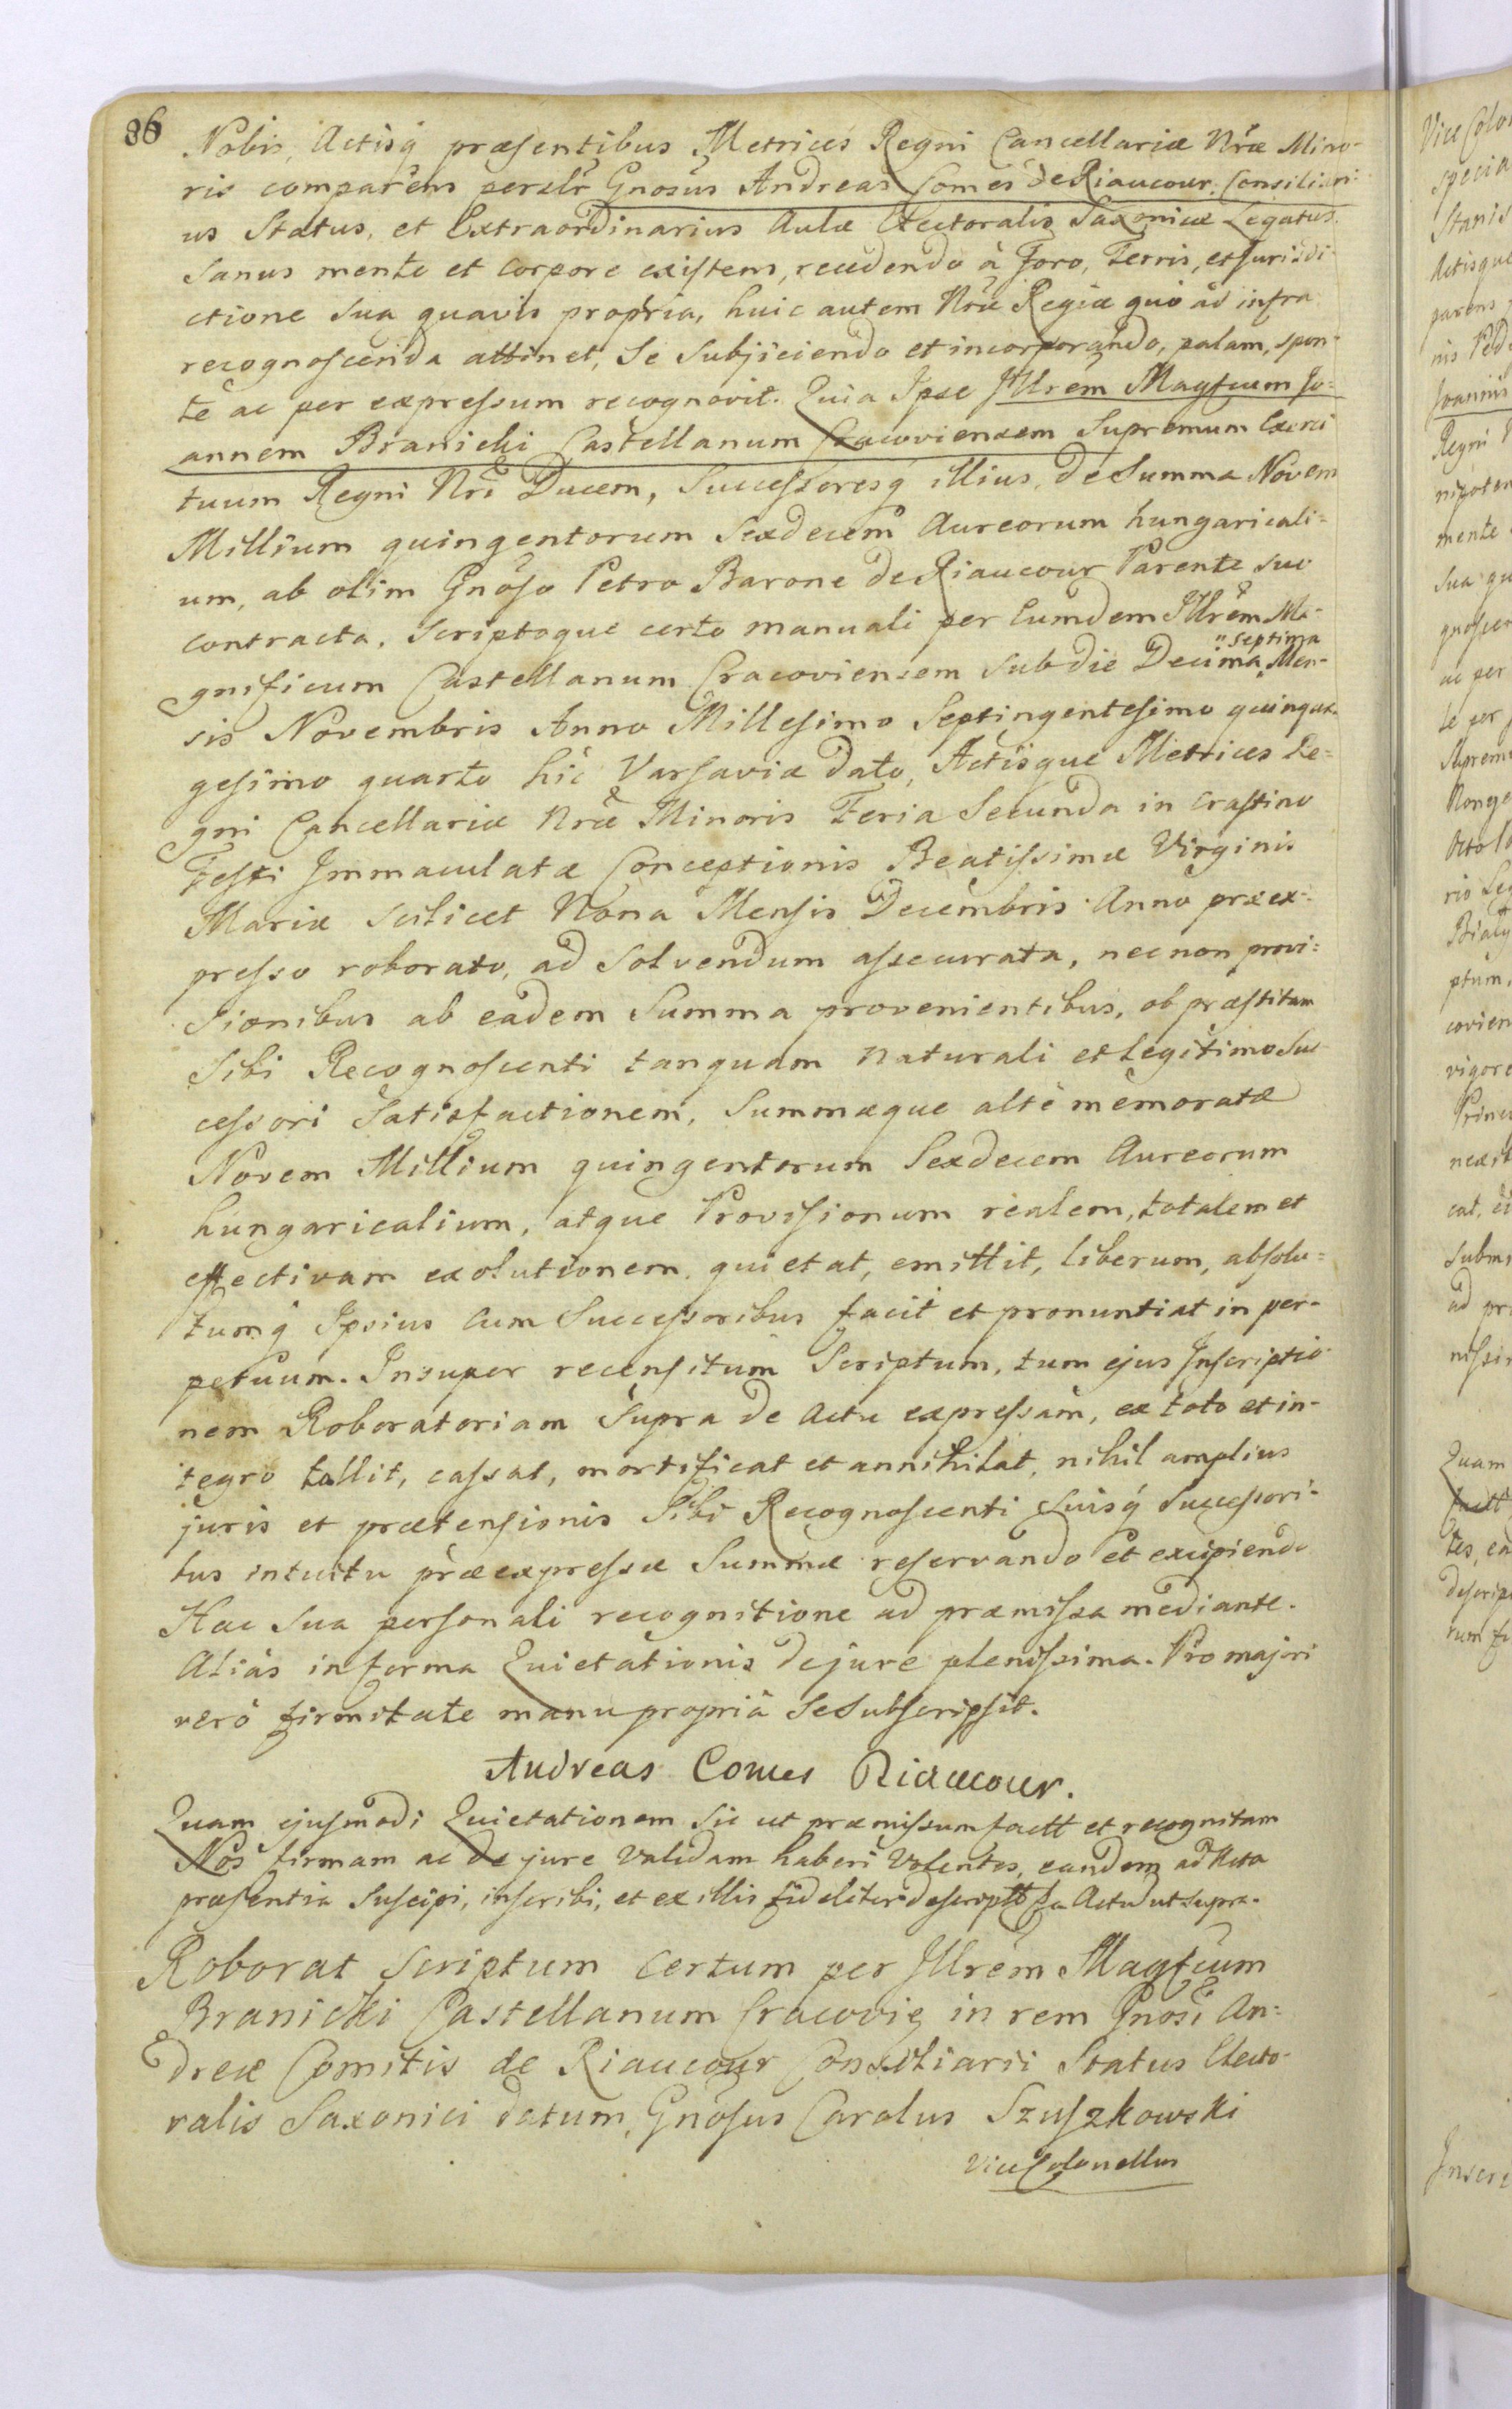 86
Nobis, Actisq̃ præsentibus Metrices Regni Cancellariæ Nr̃æ Mino-
ris comparens persltr Gnosus Andreas Comes de Riaucour Consiliari-
us Status, et Extraordinarius Aulæ Electoralis Saxonicæ Legatus
Sanus mente et Corpore existens, recedendo à Foro, Terris, et Jurisdi-
ctione sua quavis propria, huic autem Nr̃æ Regiæ quo ad infra
recognoscenda attinet, Se Subjiciendo et incorporando, palam, spon-
te ac per expressum recognovit. Quia Ipse Illrem Magfcum Jo-
annem Branicki Castellanum Cracoviensem Supremum Exerci
tuum Regni Nrĩ Ducem, Successoresq̃ illius, de Summa Novem
Millium quingentorum Sexdecem Aureorum hungaricali-
um, ab olim Gnoso Petro Barone de Riaucour Parente suo
contracta, Scriptoque certo manuali per Eumdem Illrem Ma-
gnificum Castellanum Cracoviensem sub die Decima septima Men-
sis Novembris Anno Millesimo Septingentesimo quinqua-
gesimo quarto hic Varsaviæ dato, Actisque Metrices Re-
gni Cancellariæ Nræ Minoris Feria Secunda in Crastino
Festi Immaculatæ Conceptionis Beatissimæ Virginis
Mariæ scilicet Nona Mensis Decembris Anno præex-
presso roborato, ad Solvendum assecurata, necnon provi-
sionibus ab eadem Summa provenientibus, ob præstitam
Sibi Recognoscenti tanquam naturali et Legitimo Suc
cessori Satisfactionem, Summæque altè memoratæ
Novem Millium quingentorum Sexdecem Aureorum
hungaricalium, atque Provisionum realem, totalem et
effectivam exolutionem quietat, emittit, liberum, absolu-
tumq̃ Ipsius cum Successoribus facit et pronuntiat in per-
petuum. Insuper recensitum Scriptum, tum ejus Inscriptio-
nem Roboratoriam Supra de Actu expressam, ex toto et in-
tegro tollit, cassat, mortificat et annihilat, nihil amplius
juris et prætensionis Sibi Recognoscenti Suisq̃ Successori-
bus intuitu præexpressæ Summæ reservando et excipiendo
Hac Sua personali recognitione ad præmissa mediante.
Aliàs in forma Quietationis de jure plenissima. Pro majori
verò firmitate manu propriâ Se Subscripsit.
Andreas Comes Riaucour.
Quam ejusmodi Quietationem Sic ut præmissum factt et recognitam
Nos firmam ac de jure Validam haberi Volentes, eandem ad Acta
præsentia Suscipi, inscribi, et ex illis fideliter descriptt Actu ut supra.
Roborat Scriptum Certum per Illrem Magfcum
Branicki Castellanum Cracovię in rem Gnosi An-
dreæ Comitis de Riaucour Consiliarii Status Electo-
ralis Saxonici datum, Gnosus Carolus Szuszkowski
Vice Colonellus